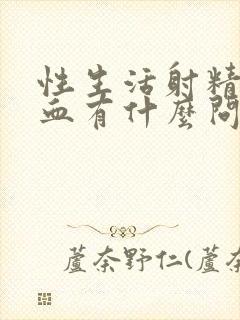 性生活射精
血有什麼問
蘆奈野仁(蘆奈